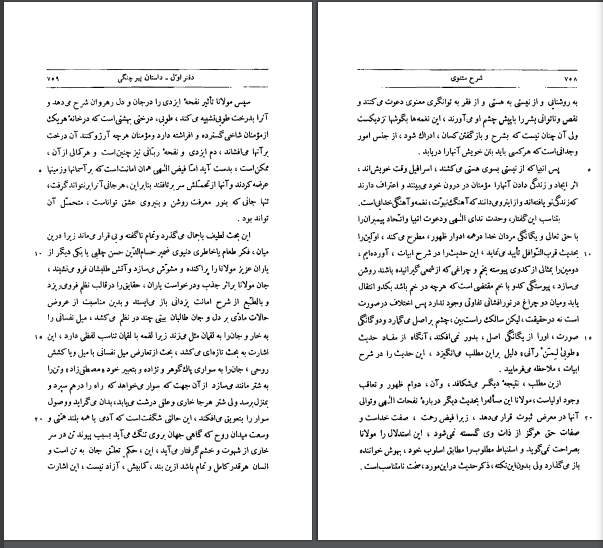 ۷۵۸ شرح مثنوی
به روشنایی و از نیستی به هستی و از فقر به توانگری معنوی دعوت می‌کنند و
نقص و ناتوانی بشر را بپیش چشم او می‌آورند ، این نغمه‌ها بگوشها نزدیکست
ولی آن چنان نیست که بشرح و بازگفتن کسان ، ادراك شود ، از جنس امور
وجدانی است که هر کسی باید بتن خویش آنها را دریابد .
پس انبیا که از نیستی بسوی هستی می‌کشند ، اسرافیل وقت خویش‌اند ، ۵
اثر ایجاد و زندگی دادن آنها را مؤمنان در درون خود می‌بینند و اعتراف دارند
که زندگی نو یافته‌اند و از اینرو می‌دانند که آهنگ نبوّت ، نغمه و آهنگ خدایی است .
بتناسب این گفتار ، وحدت ندای الٰهی و دعوت انبیا و اتّحاد پیمبران را
با حق تعالی و یگانگی مردان خدا در همه ادوار ظهور ، مطرح می‌کند ، اوّلین را
بحدیث قرب النّوافل تأیید می‌نماید ، این حدیث را در شرح ابیات ، آورده‌ایم ، ۱۰
دومین را بمثالی از کدوی پیوسته بخم و چراغی که از شمعی گیرانیده باشند روشن
می‌سازد ، پیوستگی کدو با خم مقتضی است که هرچه در خم باشد بکدو انتقال
یابد و میان دو چراغ در نورافشانی تفاوتی وجود ندارد پس اختلاف در صورت
است نه در حقیقت ، لیکن سالك راست‌بین ، چشم بر اصل می‌گمارد و دوگانگی
صورت ، او را از یگانگی اصل ، بدور نمی‌افکند ، آنگاه از مفاد حدیث ۱۵
«طوبیٰ لِمَنْ رآنی» دلیل بر این مطلب می‌انگیزد ، این حدیث را در شرح
ابیات ، ملاحظه می‌فرمایید .
ازین مطلب ، نتیجهٔ دیگر می‌شکافد ، و آن ، دوام ظهور و تعاقب
وجود اولیاست ، مولانا این مسأله را بحدیث دیگر دربارهٔ نفحات الٰهی و توالی
آنها در معرض ثبوت قرار می‌دهد ، زیرا فیض رحمت ، صفت خداست و ۲۰
صفات حق هرگز از ذات وی گسسته نمی‌شود ، این استدلال را مولانا
بصراحت نمی‌گوید و استنباط مطلوب را مطابق اسلوب خود ، بهوش خواننده
باز می‌گذارد ولی بدون این نکته ، ذکر حدیث در این مورد ، سخت نامتناسب است .
دفتر اوّل - داستان پیر چنگی ۷۵۹
سپس مولانا تأثیر نفحهٔ ایزدی را در جان و دل رهروان شرح می‌دهد و
آنرا بدرخت طوبی تشبیه می‌کند ، طوبی ، درختی بهشتی است که در خانه هر یك
از مؤمنان شاخی گسترده و افراشته دارد و مؤمنان هرچه آرزو کنند آن درخت
بر آنها می‌افشاند ، دم ایزدی و نفحهٔ ربّانی نیز چنین است و هر کمالی از آن ،
ممکن است ، بدست آید امّا فیض الٰهی همان امانت است که بر آسمانها و زمینها ۵
عرضه کردند و آنها از تحمّلش سر برتافتند ، بنابر این ، هر جانی آنرا برنتواند گرفت ،
تنها جانی که بنور معرفت روشن و بنیروی عشق تواناست ، متحمّل آن
تواند بود .
این بحث لطیف باجمال می‌گذرد و تمام ناگفته و بی قرار می‌ماند زیرا در این
میان ، فکر طعام یا خاطری دنیوی ضمیر حسام‌الدّین حسن چلبی یا یکی دیگر از ۱۰
یاران عزیز مولانا را پراکنده و مشوّش می‌سازد و آتش طلبشان فرو می‌نشیند ،
جان مولانا بر اثر جذب و درخواست یاران ، حقایق را در قالب نظم فرو می‌ریزد
و بالطبّع از شرح امانت یزدانی باز می‌ایستد و بدین مناسبت از عروض
حالات مادّی بر دل و جان طالبان بیتی چند در نظم می‌کشد ، میل نفسانی را
به خار و جان را به لقمان مثل می‌زند زیرا لقمه با لقمان تناسب لفظی دارد ، این ۱۵
اشارت به بحث تازه‌ای می‌کشد ، بحث از تعارض میل نفسانی با میل و یا کشش
روحی ، جان را به سواری پاك‌گوهر و نژاده و بتعبیر خود «مصطفی‌زاد» و تن را
به شتر مانند می‌سازد از آن جهت که سوار می‌خواهد که راه را در هم سپرد و
بمنزل برسد ولی شتر هرجا خاری و علفی درشت می‌یابد ، بدان می‌گراید و وصول
سوار را بتعویق می‌افکند ، این حالتی شگفت است که آدمی با همه بلند همّتی و ۲۰
وسعت میدان روح که گاهی جهان بر وی تنگ می‌آید بسبب پیوند تن در سر
خاری از شهوت و خشم گرفتار می‌آید ، این ، حکم تعلّق جان به تن است و
انسان هر قدر کامل و تمام باشد ازین بند ، کمابیش ، آزاد نیست ، این اشارت